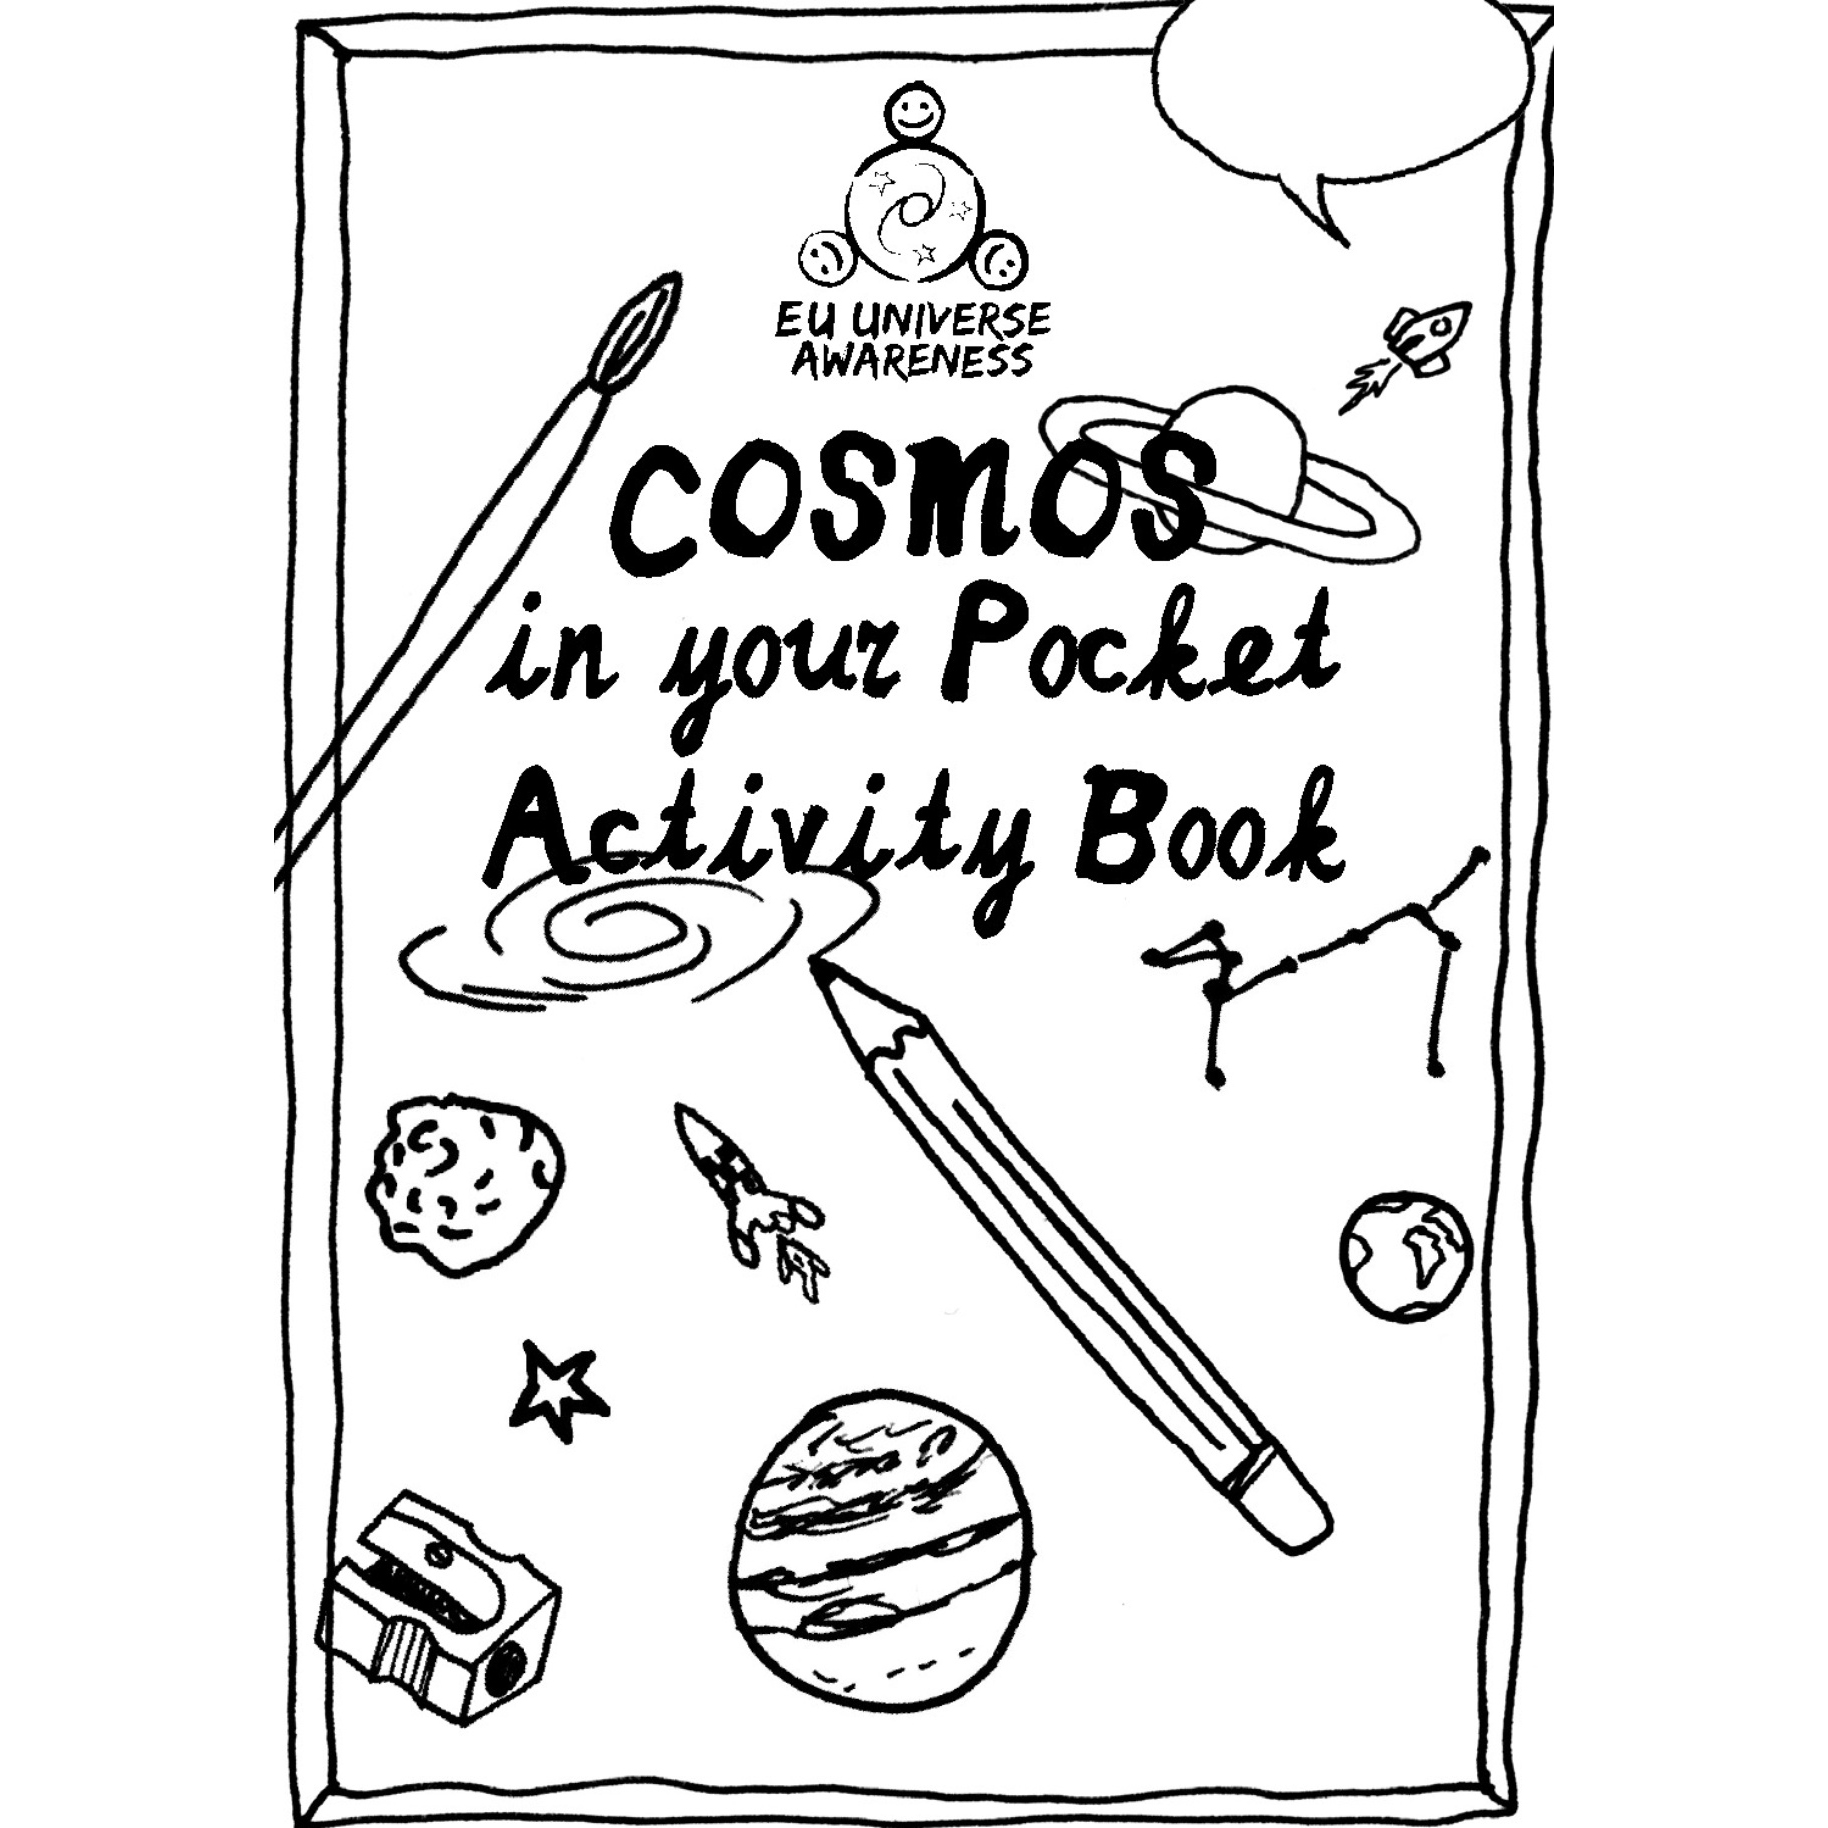 EU UNIVERSE
AWARENESS
COSMOS
in your Pocket
Activity Book